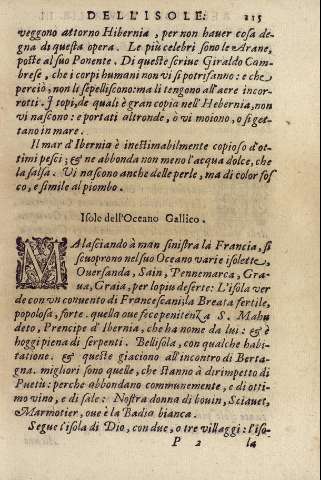 DELL'ISOLE. 215
veggono attorno Hibernia, per non hauer cosa de-
gna di questa opera. Le più celebri sono le Arane,
poste al suo Ponente. Di queste scriue Giraldo Cam-
brese, che i corpi humani non vi si potrisanno: e che
perciò, non li sepelliscono: ma li tengono all'aere incor-
rotti. I topi, de quali è gran copia nell'Hebernia, non
vi nascono: e portati altronde, ò vi moiono, o si get-
tano in mare.
Il mar d'Ibernia è inestimabilmente copioso d'ot-
timi pesci; & ne abbonda non meno l'acqua dolce, che
la salsa. Vi nascono anche delle perle, ma di color fos
co, e simile al piombo.
Isole dell'Oceano Gallico.
VA lasciando à man sinistra la Francia, si
scuoprono nel suo Oceano varie isolette,
Ouersanda, Sain, Pennemarca, Gra-
ua, Graia, per lo piu deserte: L'isola ver
de con un conuento di Francescani, la Breata fertile,
popolosa, forte. quella oue fece penitenza S. Mahu
deto, Prencipe d'Ibernia, che ha nome da lui: & è
hoggi piena di serpenti. Bellisola, con qualche habi-
tatione. & queste giaciono all'incontro di Berta-
gna. migliori sono quelle, che stanno à dirimpetto di
Puetù: perche abbondano communemente, e di otti-
mo vino, e di sale: Nostra donna di bouin, Sciauet,
Marmotier, oue è la Badia bianca.
Segue l'isola di Dio, con due, o tre villaggi: l'iso-
P 2 la